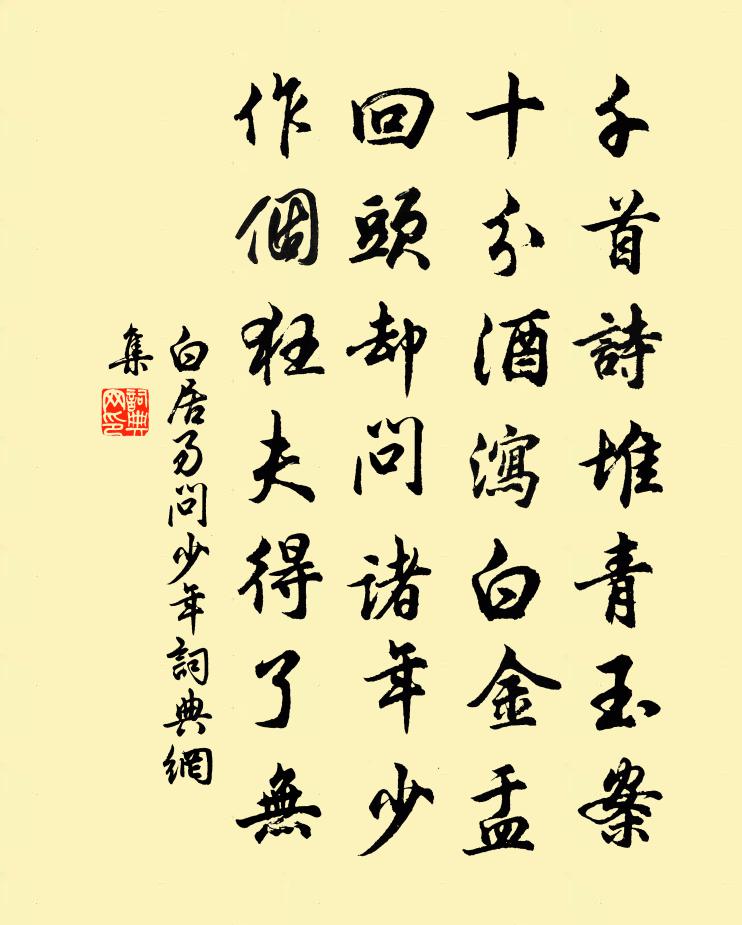 千首詩堆青玉案
十分酒瀉白金盂
回頭却問諸年少
作個狂夫得了無
白居易問少年詞典網
集
詞典
网印